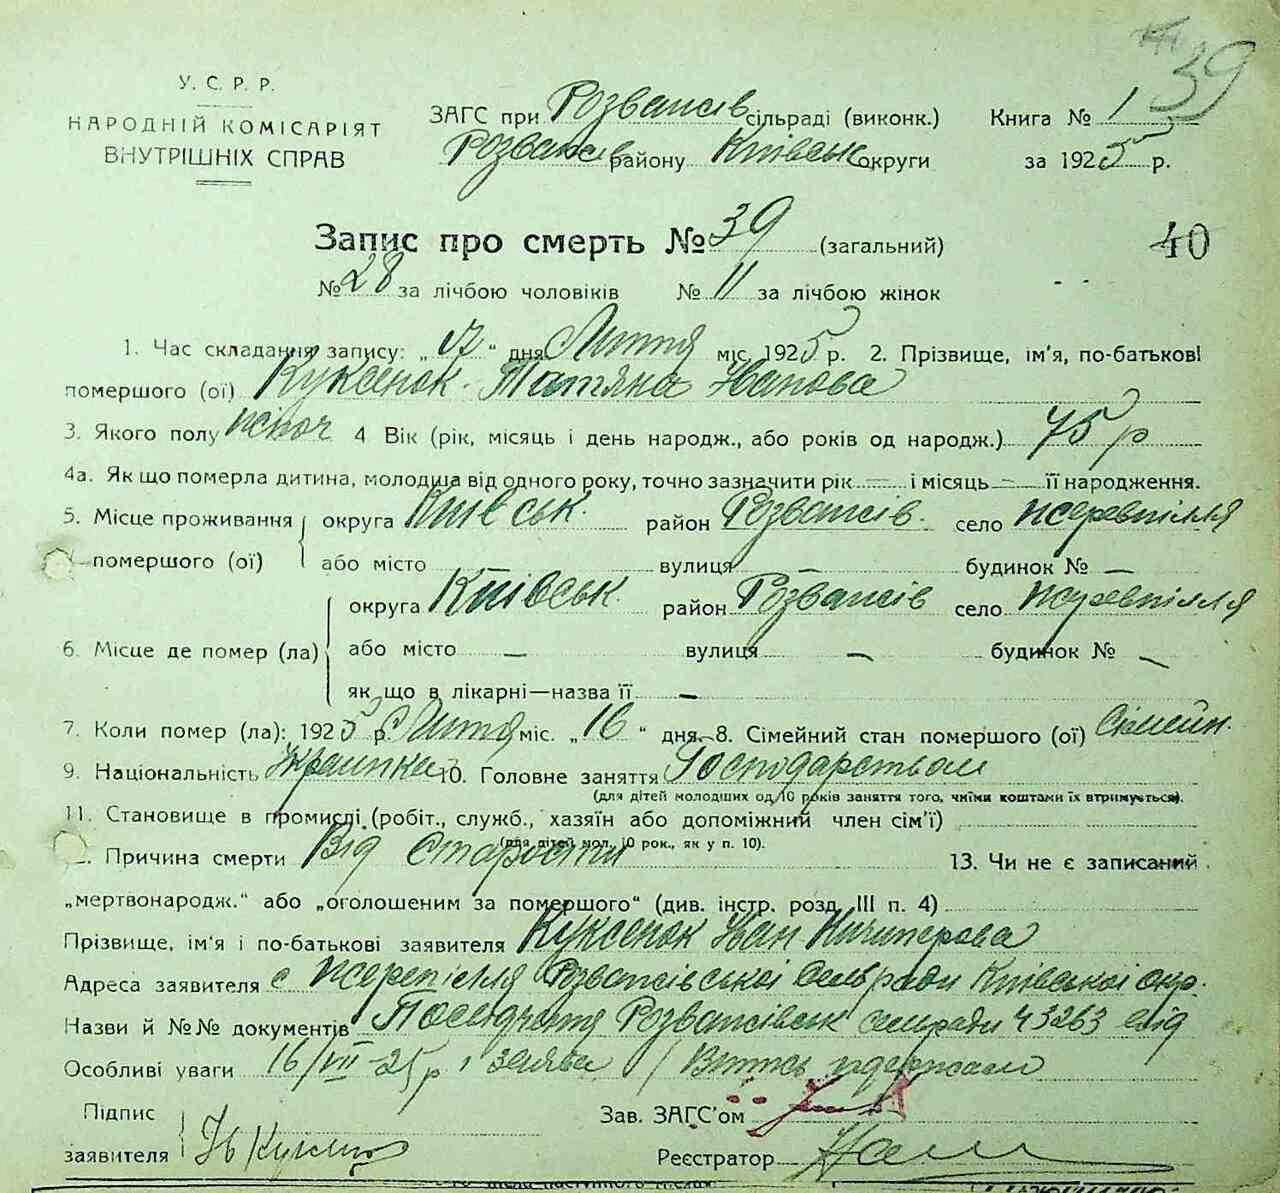 39
У. С. Р. Р.
НАРОДНІЙ КОМІСАРІЯТ
ВНУТРІШНІХ СПРАВ
ЗАГС при Розважів сільраді (виконк.) Книга № 1
Розважів району Київськ округи за 1925 р.
Запис про смерть № 39 (загальний) 40
№ 28 за лічбою чоловіків № 11 за лічбою жінок
1. Час складання запису: „17“ дня Липня міс. 1925 р. 2. Прізвище, ім'я, по-батькові
помершого (ої) Куксенок Татяна Іванова
3. Якого полу жіноч 4 Вік (рік, місяць і день народж., або років од народж.) 75 р
4а. Як що померла дитина, молодша від одного року, точно зазначити рік — і місяць — її народження.
5. Місце проживання округа Київськ. район Розважів. село Жеревпілля
помершого (ої) або місто вулиця — будинок № —
округа Київськ район Розважів село Жеревпілля
6. Місце де помер (ла) або місто — вулиця — будинок № —
як що в лікарні—назва її —
7. Коли помер (ла): 1925 р Липня міс. „16“ дня. 8. Сімейний стан помершого (ої) Сімейн.
9. Національність Украинка 10. Головне заняття Господарством
(для дітей молодших од 10 років заняття того, чиїми коштами їх втримується).
11. Становище в промислі (робіт., служб., хазяїн або допоміжний член сім'ї)
(для дітей мол. 10 рок., як у п. 10).
Причина смерти Від Старости 13. Чи не є записаний
„мертвонародж.“ або „оголошеним за помершого“ (див. інстр. розд. III п. 4)
Прізвище, ім'я і по-батькові заявителя Куксенок Іван Ничипорова
Адреса заявителя с Жерепілля Розважівської сельради Київської окр.
Назви й №№ документів Посвідчення Розважівськ сельради 43263 від
Особливі уваги 16/VII-25 р і заява / Витяг одержал
Підпис
заявителя Ів Куксенок
Зав. ЗАГС'ом
Реєстратор